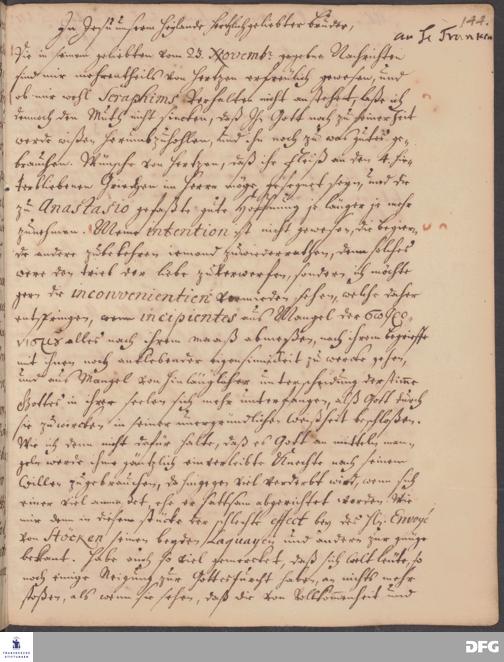 144.
an H. Francken
In Jesu unserm Heylande hertzlich geliebter bruder,
Die in seinem geliebten vom 23. Novembr. gegebene Nachrichten
sind mir mehrentheils von hertzen erfreulich gewesen, und
ob mir wohl Seraphims Verhalten nicht anstehet, lasse ich
dennoch den Muth nicht sincken, daß Ihn Gott noch zu seiner Zeit
werde wißen herumzuhohlen, und ihn noch zu was gutes ge-
brauchen. Wünsche von hertzen, daß ihr fleiß an den 4. hin-
terbliebenen Griechen im Herrn möge gesegnet seyn, und die
zu Anastasio gefaßte gute Hoffnung je länger je mehr
zunehmen. Meine intention ist nicht gewesen, die begier-
de andere zu bekehren iemand zu wiederrathen, denn solches
were den trieb der liebe zu verwerfen, sondern ich möchte
gern die inconvenientien vermieden sehen, welche daher
entspringen, wenn incipientes aus Mangel der
alles nach ihrem maaß abmeßen, nach ihrem begriffe
mit ihnen noch anklebender eigensinnigkeit zu wercke gehen,
und aus Mangel von hinlänglicher unterscheidung der stimme
Gottes in ihrer Seelen sich mehr unterfangen, alß Gott durch
sie zu wircken in seiner unergründlichen Weißheit beschloßen.
Wie ich denn nicht dafür halte, daß es Gott an mitteln man-
geln werde ihme gäntzlich einverleibte Knechte nach seinem
Willen zu gebrauchen, da hingegen viel verderbet wird, wenn sich
einer viel anmaßet, ehe er sattsam abgerichtet worden. Wie
mir denn in diesem stücke der schlechte effect bey des Hn. Envoyé
von Stöcken seinen beyden Laquayen und andern zur gnüge
bekant. Habe auch so viel gemercket, daß sich weltleute, so
noch einige Neigung zur Gottesfurcht haben, an nichts mehr
stoßen, als wenn sie sehen, daß die von Vollkommenheit und
FRANCKESCHE STIFTUNGEN
DFG